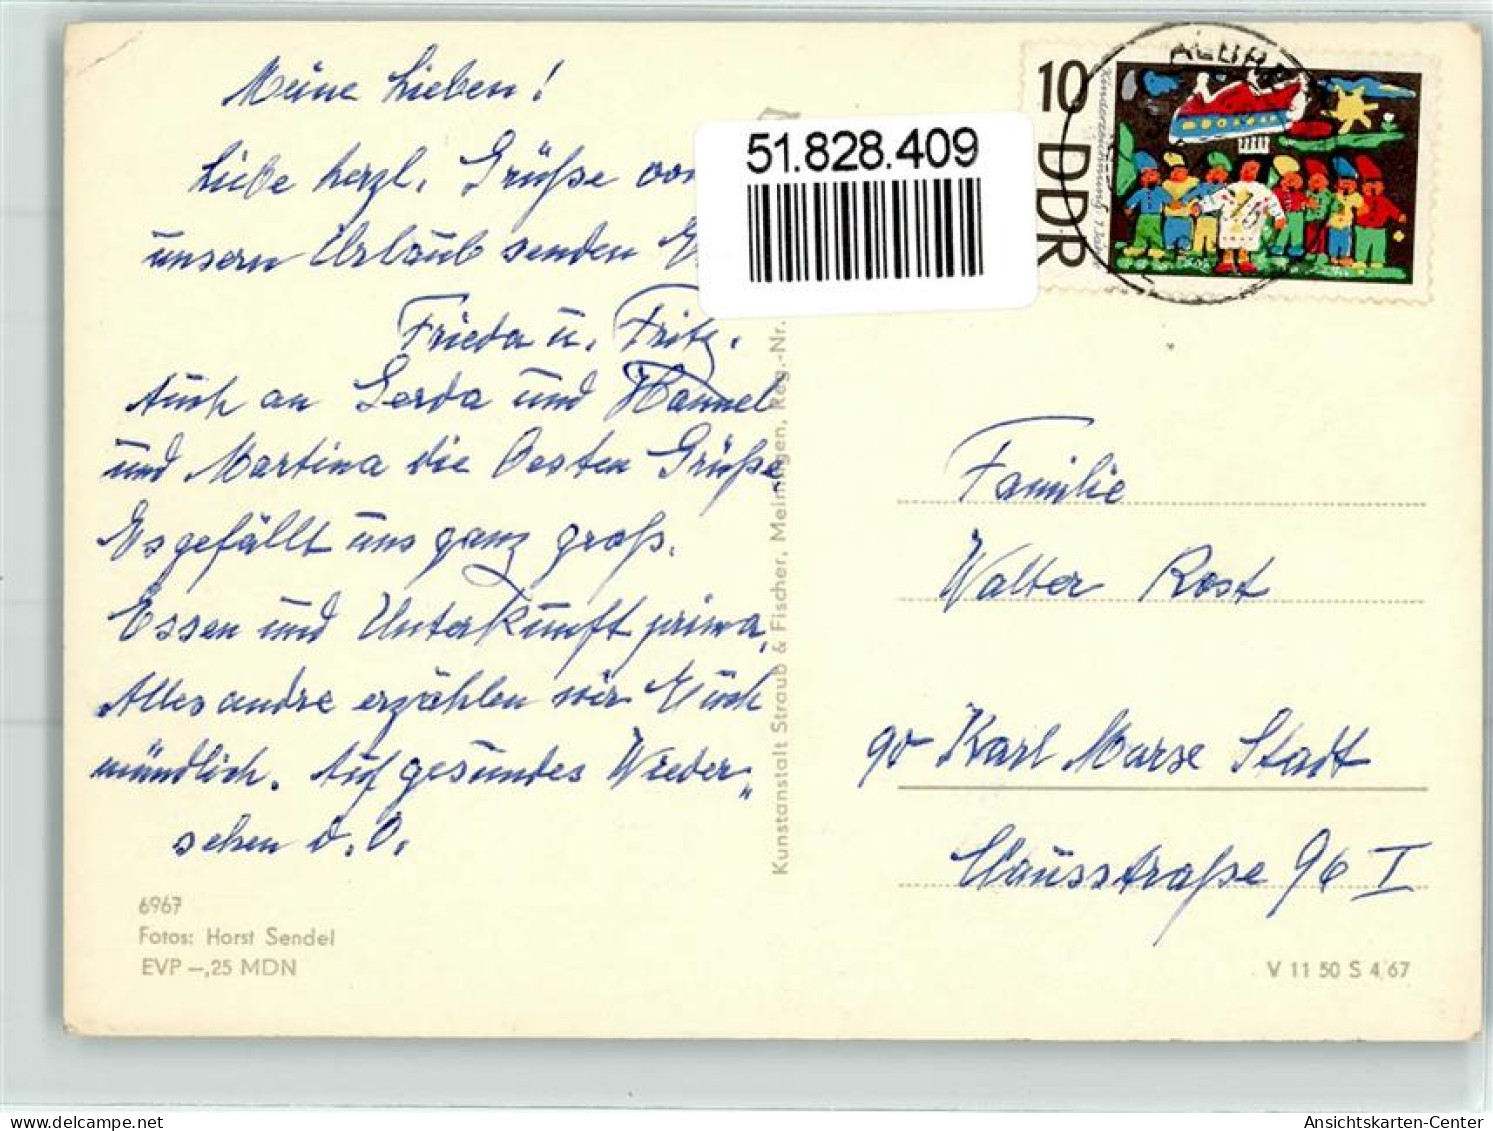 Meine Lieben!
Liebe herzl. Grüße von
unsern Urlaub senden
Frieda u. Fritz.
Auch an Gerda und Hannel
und Martina die Besten Grüße
Es gefällt uns ganz groß.
Essen und Unterkunft prima,
Alles andre erzählen wir Euch
mündlich. Auf gesundes Wieder„
sehen d. O.
6967
Fotos: Horst Sendel
EVP –,25 MDN
Kunstanstalt Straub & Fischer, Meiningen, Reg.-Nr.
51.828.409
10
DDR
Kinderzeichnung
ALBRE
Familie
Walter Rost
90 Karl Marx Stadt
Clausstraße 96 I
V 11 50 S 4/67
www.delcampe.net
Ansichtskarten-Center